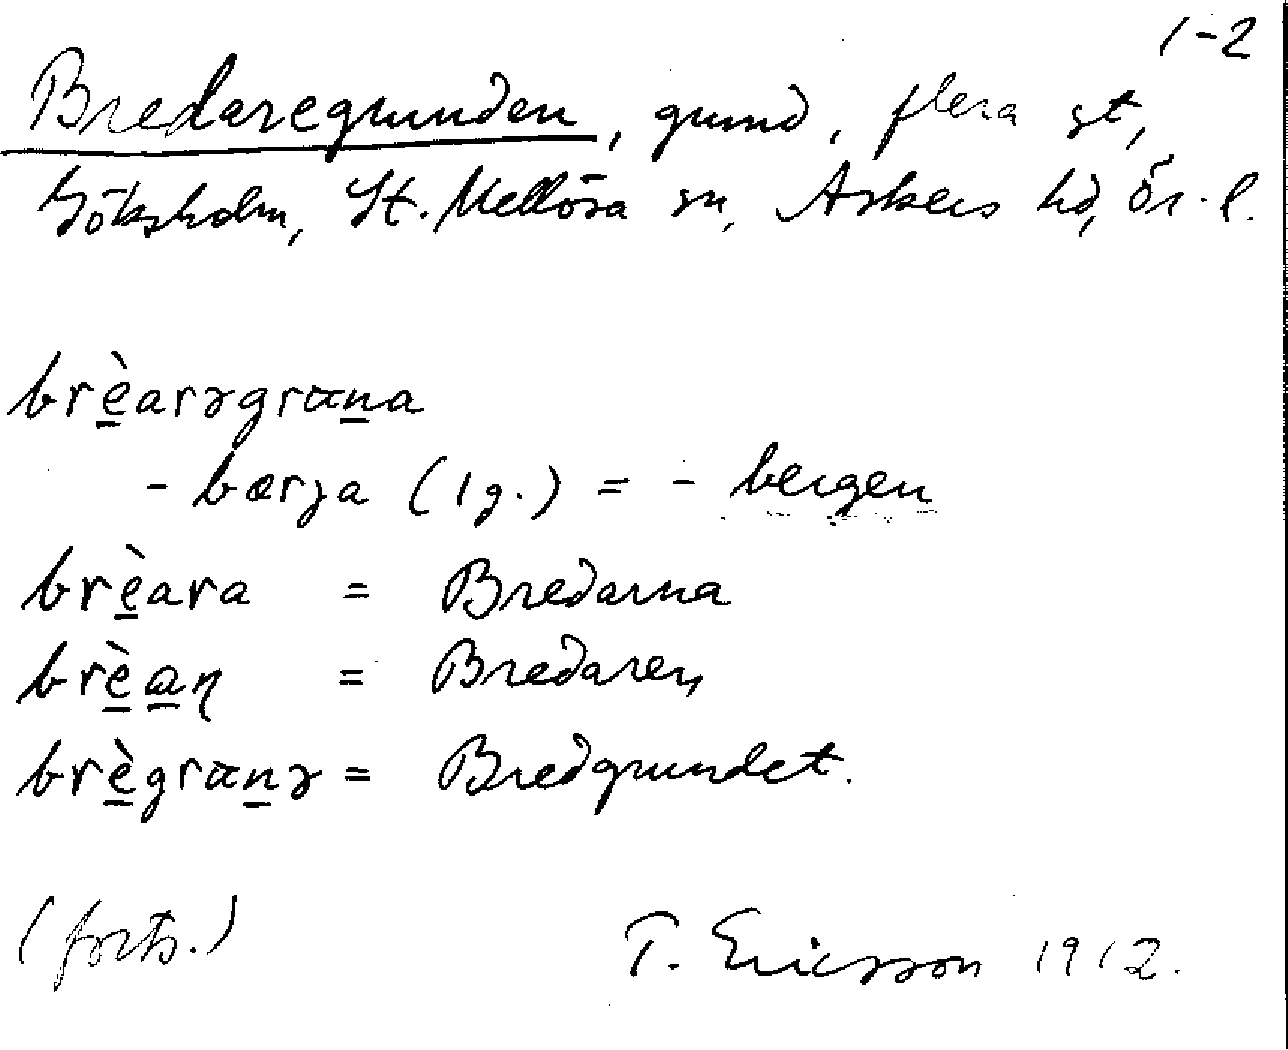 1-2
Bredaregrunden, grund, flera st,
Göksholm, St. Mellösa sn, Askers hd, Ör. l.
brè̱arəgrɯṉa
- bærja (1g.) = - bergen
brè̱ara = Bredarna
brè̱a̱ɳ = Bredaren
brè̱grɯṉə = Bredgrundet.
(forts.) T. Ericsson 1912.